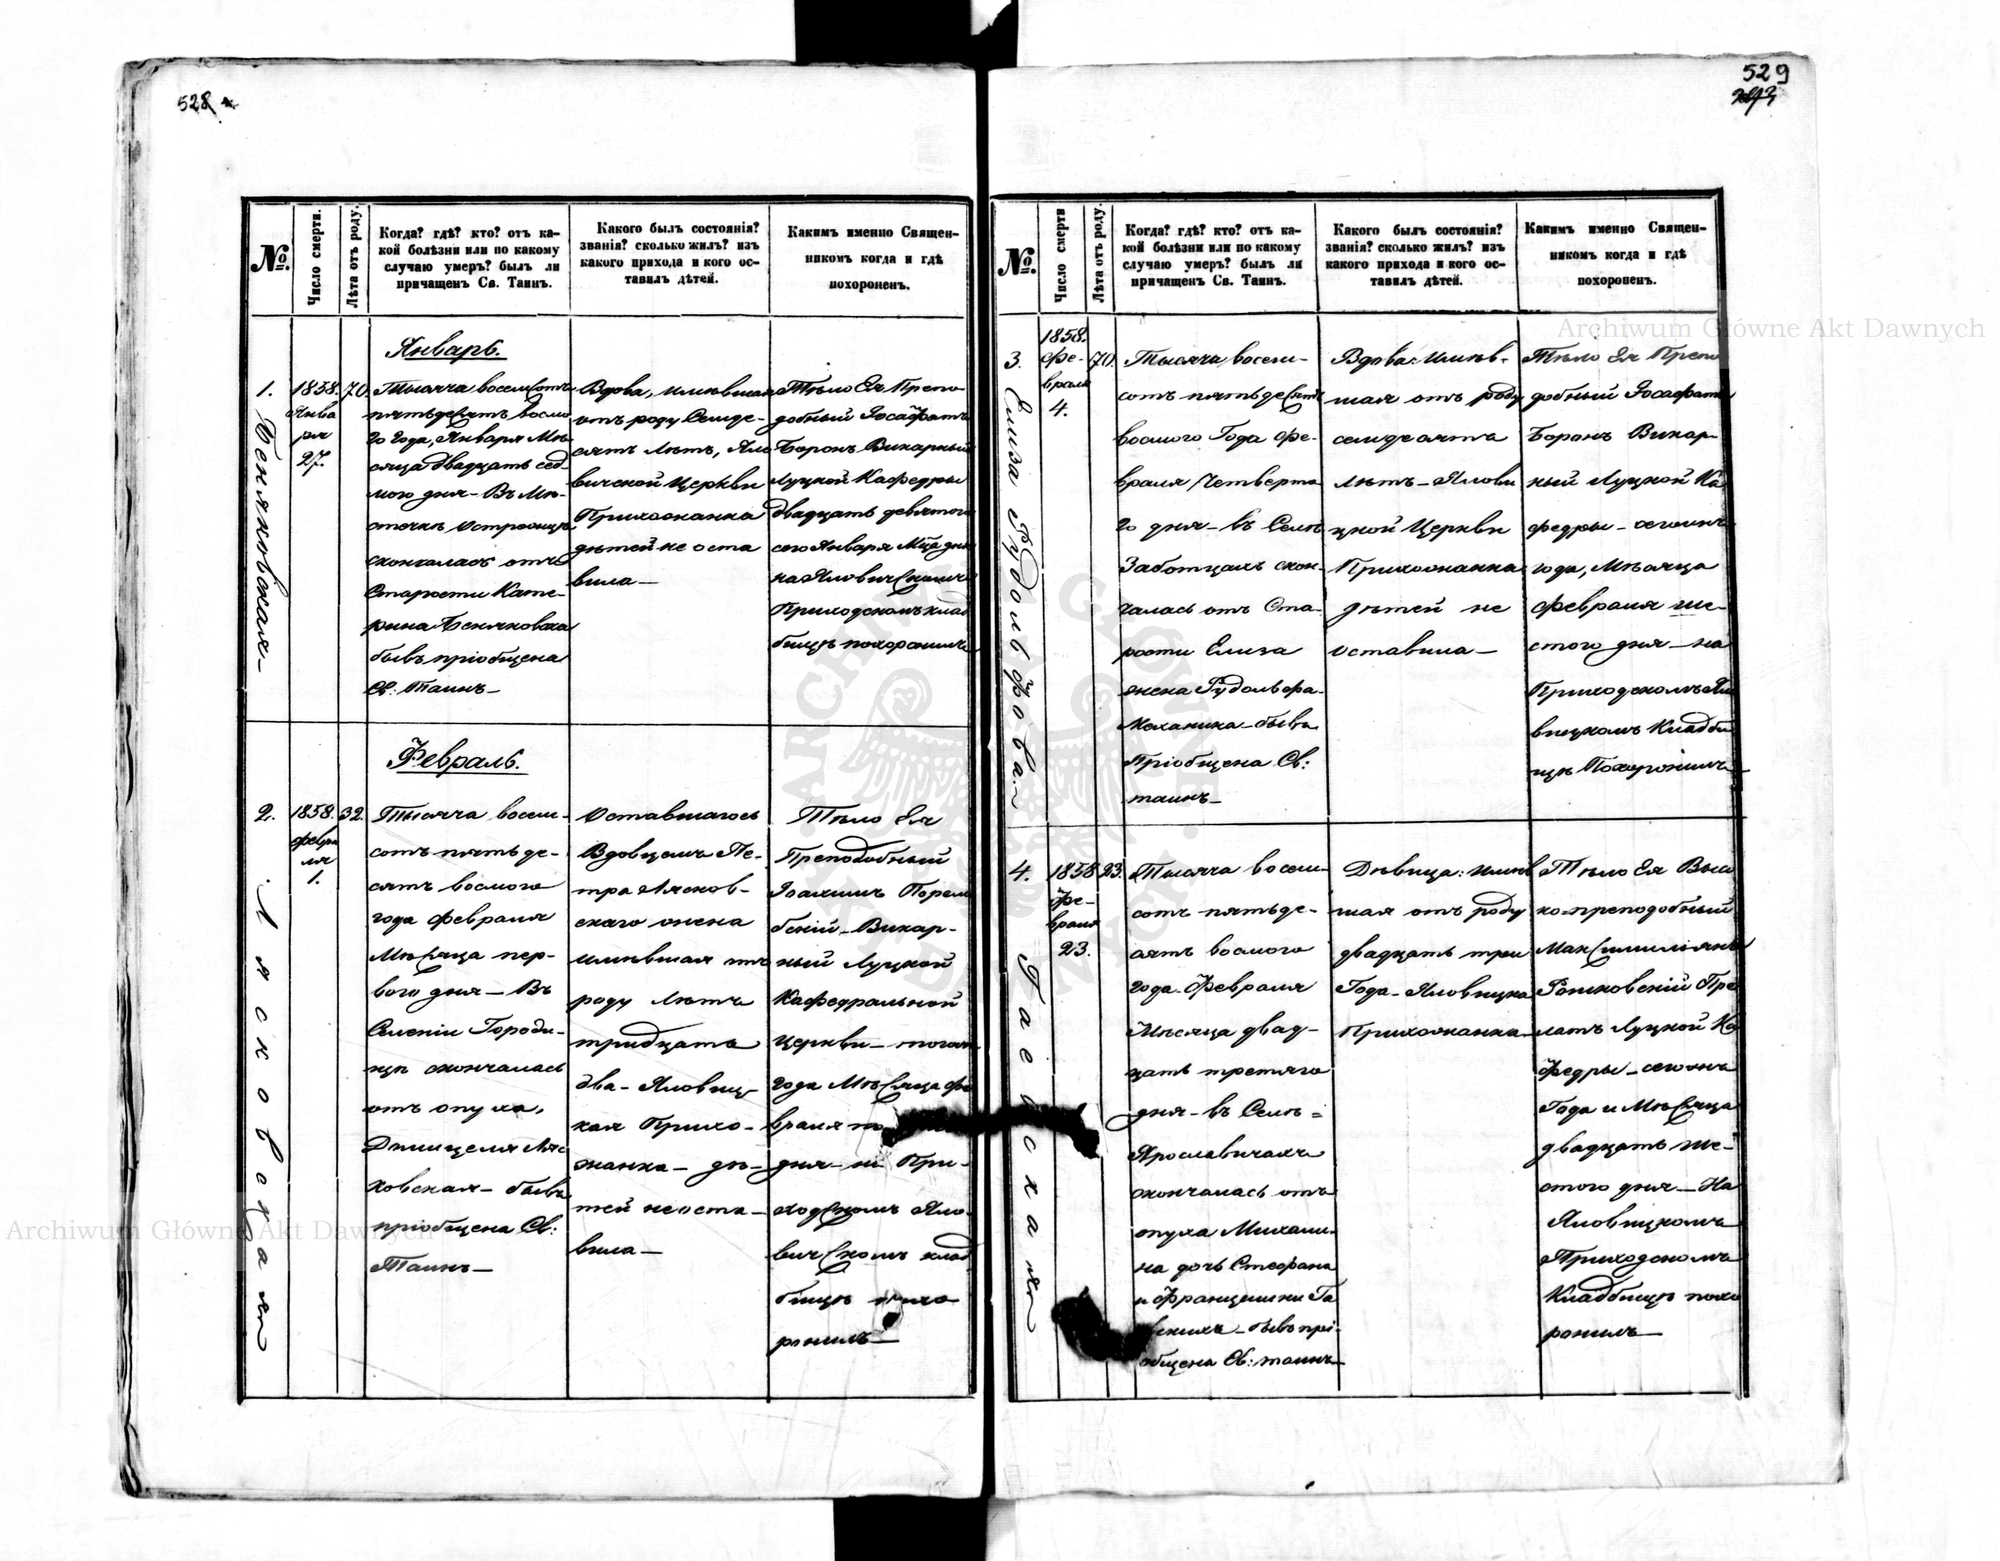 528
№.
Число смерти.
Лѣта отъ роду.
Когда? гдѣ? кто? отъ ка-
кой болѣзни или по какому
случаю умеръ? былъ ли
причащенъ Св. Таинъ.
Какого былъ состоянія?
званія? сколько жилъ? изъ
какого прихода и кого ос-
тавилъ дѣтей.
Какимъ именно Священ-
никомъ когда и гдѣ
похороненъ.
1.
Беняковская
1858.
Янва
ря
27.
70.
Январь.
Тысяча восемсотъ
пятьдесятъ восмо
го года, Января Мѣ-
сяца двадцать сед
мого дня – Въ Мѣ-
стечкѣ Острожцѣ
скончалась отъ
Старости Кате-
рина Беняковска
бывъ пріобщена
Св: Таинъ –
Вдова, имѣвшая
отъ роду Семде-
сятъ лѣтъ, Яло
вичской Церкви
Прихожанка
дѣтей не оста
вила –
Тѣло Ея Препо
добный Іосафатъ
Баронъ Викарный
Луцкой Кафедры
двадцать девятого
сего Января Мца дня
на Яловичскомъ
Приходскомъ клад
бищѣ похоронилъ
2.
Лясковская
1858.
Февра
ля
1.
32.
Февраль.
Тысяча восем-
сотъ пятьде-
сятъ восмого
года Февраля
Мѣсяца пер-
вого дня – Въ
Селеніи Городи-
щѣ скончалась
отъ опуха,
Ляс
ковская – бывъ
пріобщена Св:
Таинъ –
Оставшагось
Вдовцемъ Пе-
тра Лясков-
скаго жена
имѣвшая отъ
роду лѣтъ
тридцать
два – Яловиц-
кая Прихо-
жанка – дѣ-
тей неоста-
вила –
Тѣло Ея
Преподобный
Іоахимъ
Викар-
ный Луцкой
Кафедральной
Церкви – тогожъ
года Мѣсяца Фе
враля
дня – на При-
ходскомъ Яло-
вичскомъ клад
бищѣ похо
ронилъ –
529
№.
Число смерти
Лѣта отъ роду.
Когда? гдѣ? кто? отъ ка-
кой болѣзни или по какому
случаю умеръ? былъ ли
причащенъ Св. Таинъ.
Какого былъ состоянія?
званія? сколько жилъ? изъ
какого прихода и кого ос-
тавилъ дѣтей.
Какимъ именно Священ-
никомъ когда и гдѣ
похороненъ.
3.
Елиза Рудольфова
1858.
Фе-
враля
4.
70.
Тысяча восем-
сотъ пятьдесятъ
восмого Года Фе-
враля Четверта
го дня – въ Селѣ
Заботцахъ скон-
чалась отъ Ста-
рости Елиза
жена Рудольфа
Механика – бывъ
Пріобщена Св:
таинъ –
Вдова: имѣв-
шая отъ роду
семдесятъ
лѣтъ – Ялови
цкой Церкви
Прихожанка
дѣтей не
оставила –
Тѣло Ея Препо
добный Іосафатъ
Баронъ Викар-
ный Луцкой Ка
федры – сегожъ
года, Мѣсяца
Февраля ше-
стого дня – на
Приходскомъ Яло
вицкомъ Кладби
щѣ Похоронилъ
4.
Гаевская
1858
Фе-
враля
23.
23.
Тысяча восем-
сотъ пятьде-
сятъ восмого
года – Февраля
Мѣсяца двад-
цать третяго
дня – въ Селѣ =
Ярославичахъ
скончалась отъ
опуха Михали-
на дочь Стефана
и Францишки Га
евскихъ – бывъ прі-
общена Св: таинъ –
Дѣвица: имѣв
шая отъ роду
двадцать три
Года – Яловицка
Прихожанка –
Тѣло Ея Высо
ко-преподобный
Максимиліянъ
Пре
латъ Луцкой Ка
федры – сегожъ
Года и Мѣсяца
двадцать ше-
стого дня – На
Яловицкомъ
Приходскомъ
Кладбищѣ похо
ронилъ –
Archiwum Główne Akt Dawnych
Archiwum Główne Akt Dawnych